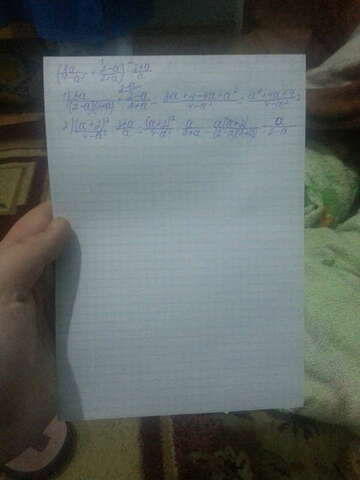 (8a/4-a² + 2-a/2+a) : 2+a/a
1) 8a/(2-a)(2+a) + 2-a/2+a = 8a+4-4a+a²/4-a² = a²+4a+4/4-a² =
2) (a+2)²/4-a² : 2+a/a = (a+2)²/4-a² · a/2+a = a(a+2)/(2-a)(2+a) = a/2-a